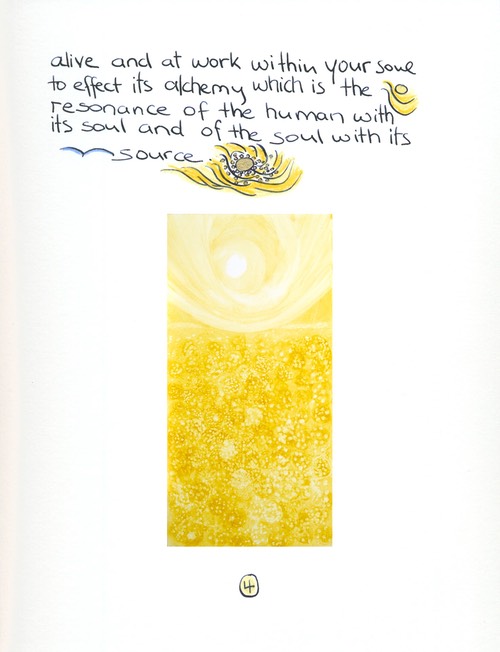 alive and at work within your soul
to effect its alchemy which is the
resonance of the human with
its soul and of the soul with its
source.
4